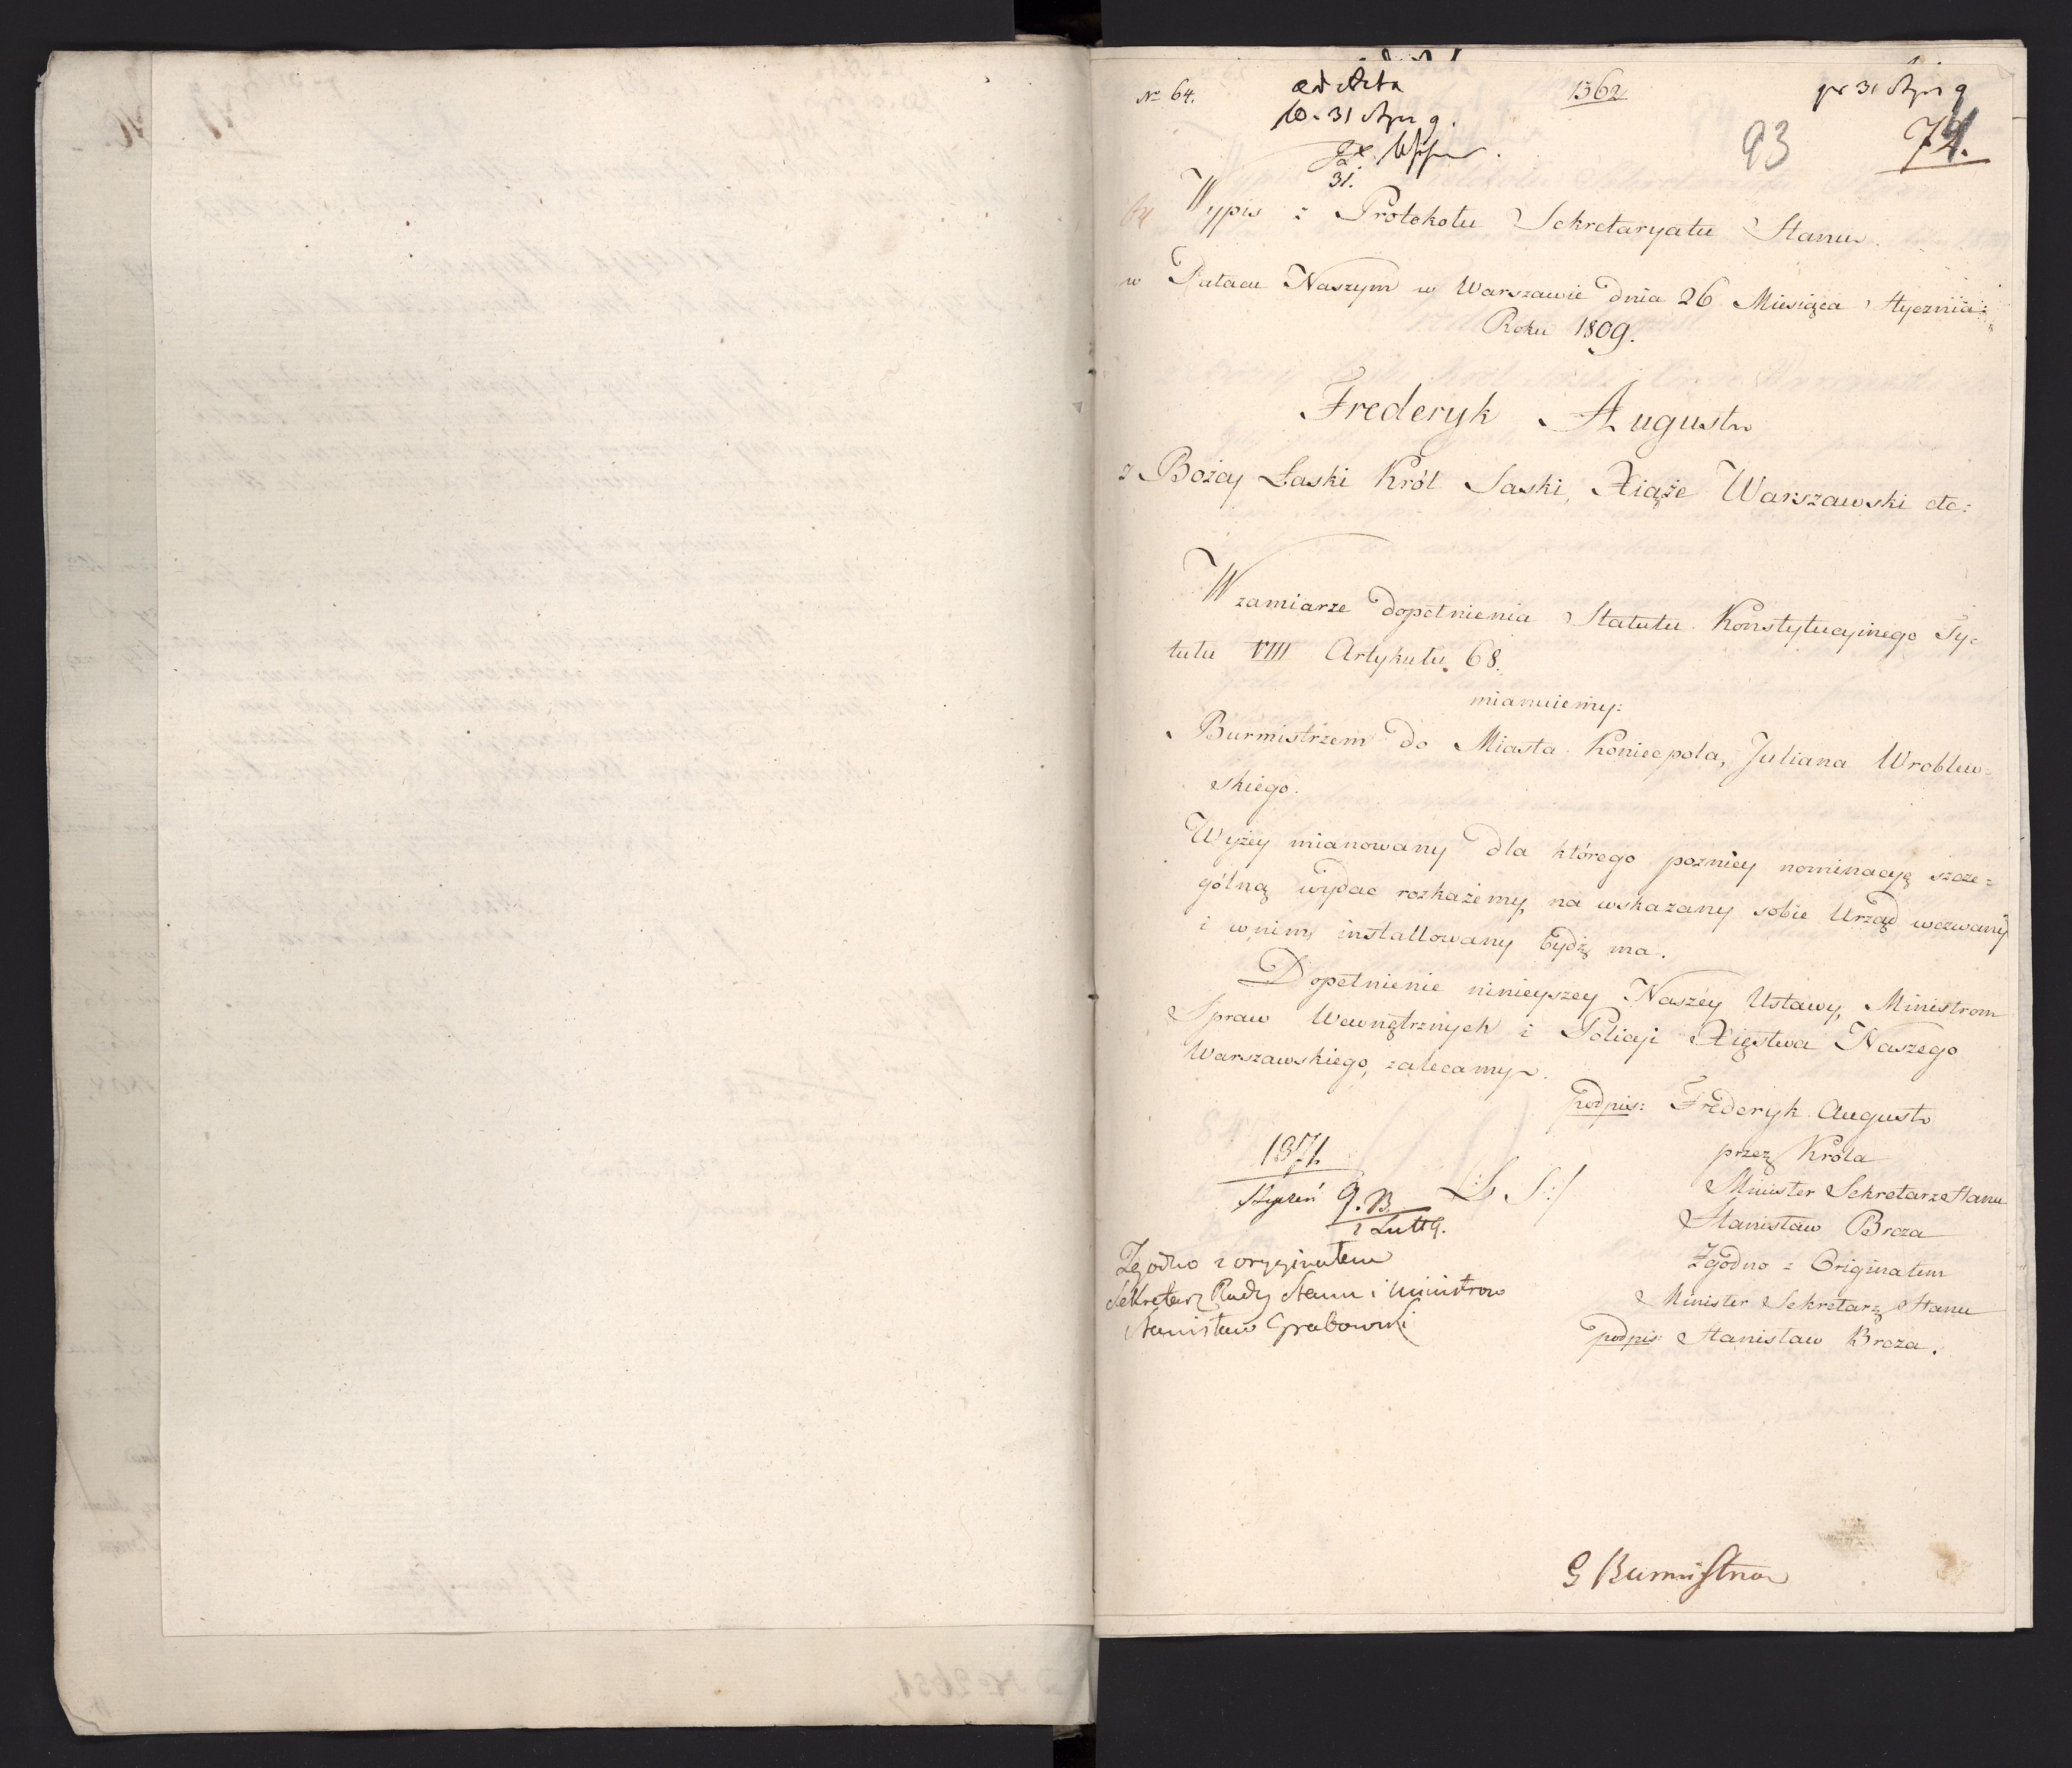 No 64.
ad Acta
1362
pr 31 Stycz 9
D. 31 Stycz 9.
93
74.
31.
64
Wypis z Protokołu Sekretaryatu Stanu.
w Pałacu Naszym w Warszawie dnia 26 Miesiąca Stycznia
Roku 1809.
Frederyk August
z Bożey Łaski Król Saski, Xiąże Warszawski etc:
W zamiarze dopełnienia Statutu Konstytucyinego Ty=
tułu VIII Artykułu 68.
mianuiemy:
Burmistrzem do Miasta Koniecpola, Juliana Wroblew=
skiego.
Wyżey mianowany dla którego pozniey nominacyą szcze=
gólną wydac rozkażemy, na wskazany sobie Urząd wezwany
i w nim installowany bydź ma.
Dopełnienie ninieyszey Naszéy Ustawy, Ministrom
Spraw Wewnętrznych i Policyi Xięstwa Naszego
Warszawskiego, zalecamy.
podpis: Frederyk August
przez Króla
Minister Sekretarz Stanu
Stanisław Breza
Zgodno z Originałem
Minister Sekretarz Stanu
podpis: Stanisław Breza.
1371
Styczeń 9. B.
L: S:/
1 Lut 9.
Zgodno z oryginałem
Sekretarz Rady Stanu i Ministrow
Stanisław Grabowski
G Burmistrza